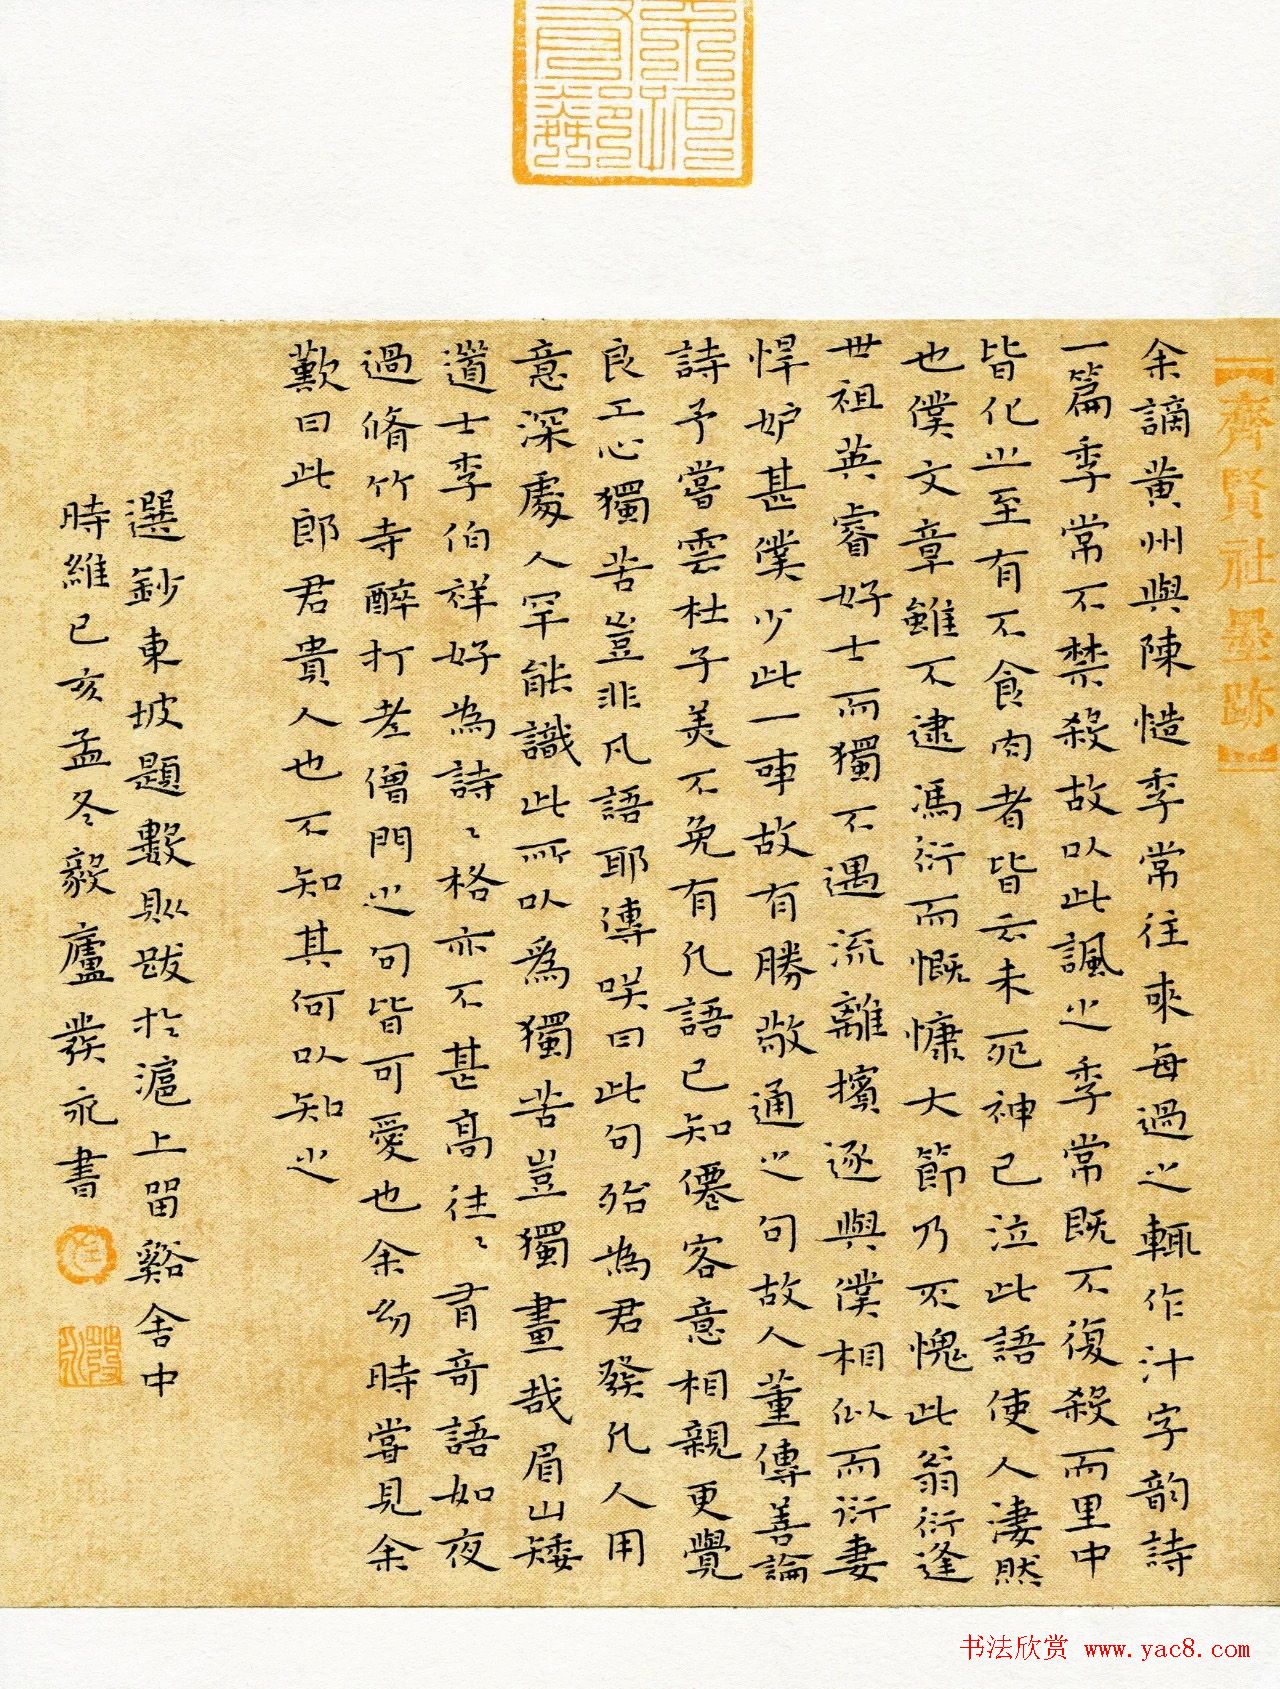 【齊賢社墨跡】
余謫黄州與陳慥季常往來每過之輒作汁字韵詩
一篇季常不禁殺故以此諷之季常既不復殺而里中
皆化之至有不食肉者皆云未死神已泣此語使人淒然
也僕文章雖不逮馮衍而慨慷大節乃不愧此翁衍逢
世祖英睿好士而獨不遇流離擯逐與僕相似而衍妻
悍妒甚僕少此一事故有勝敬通之句故人董傳善論
詩予嘗雲杜子美不免有凡語已知僊客意相親更覺
良工心獨苦豈非凡語耶傳咲曰此句殆為君發凡人用
意深處人罕能識此所以為獨苦豈獨畫哉眉山矮
道士李伯祥好為詩〻格亦不甚高往〻有奇語如夜
過脩竹寺醉打老僧門之句皆可愛也余幼時嘗見余
歎曰此郎君貴人也不知其何以知之
選鈔東坡題數則跋於滬上留谿舍中
時維己亥孟冬毅廬發永書
书法欣赏 www.yac8.com